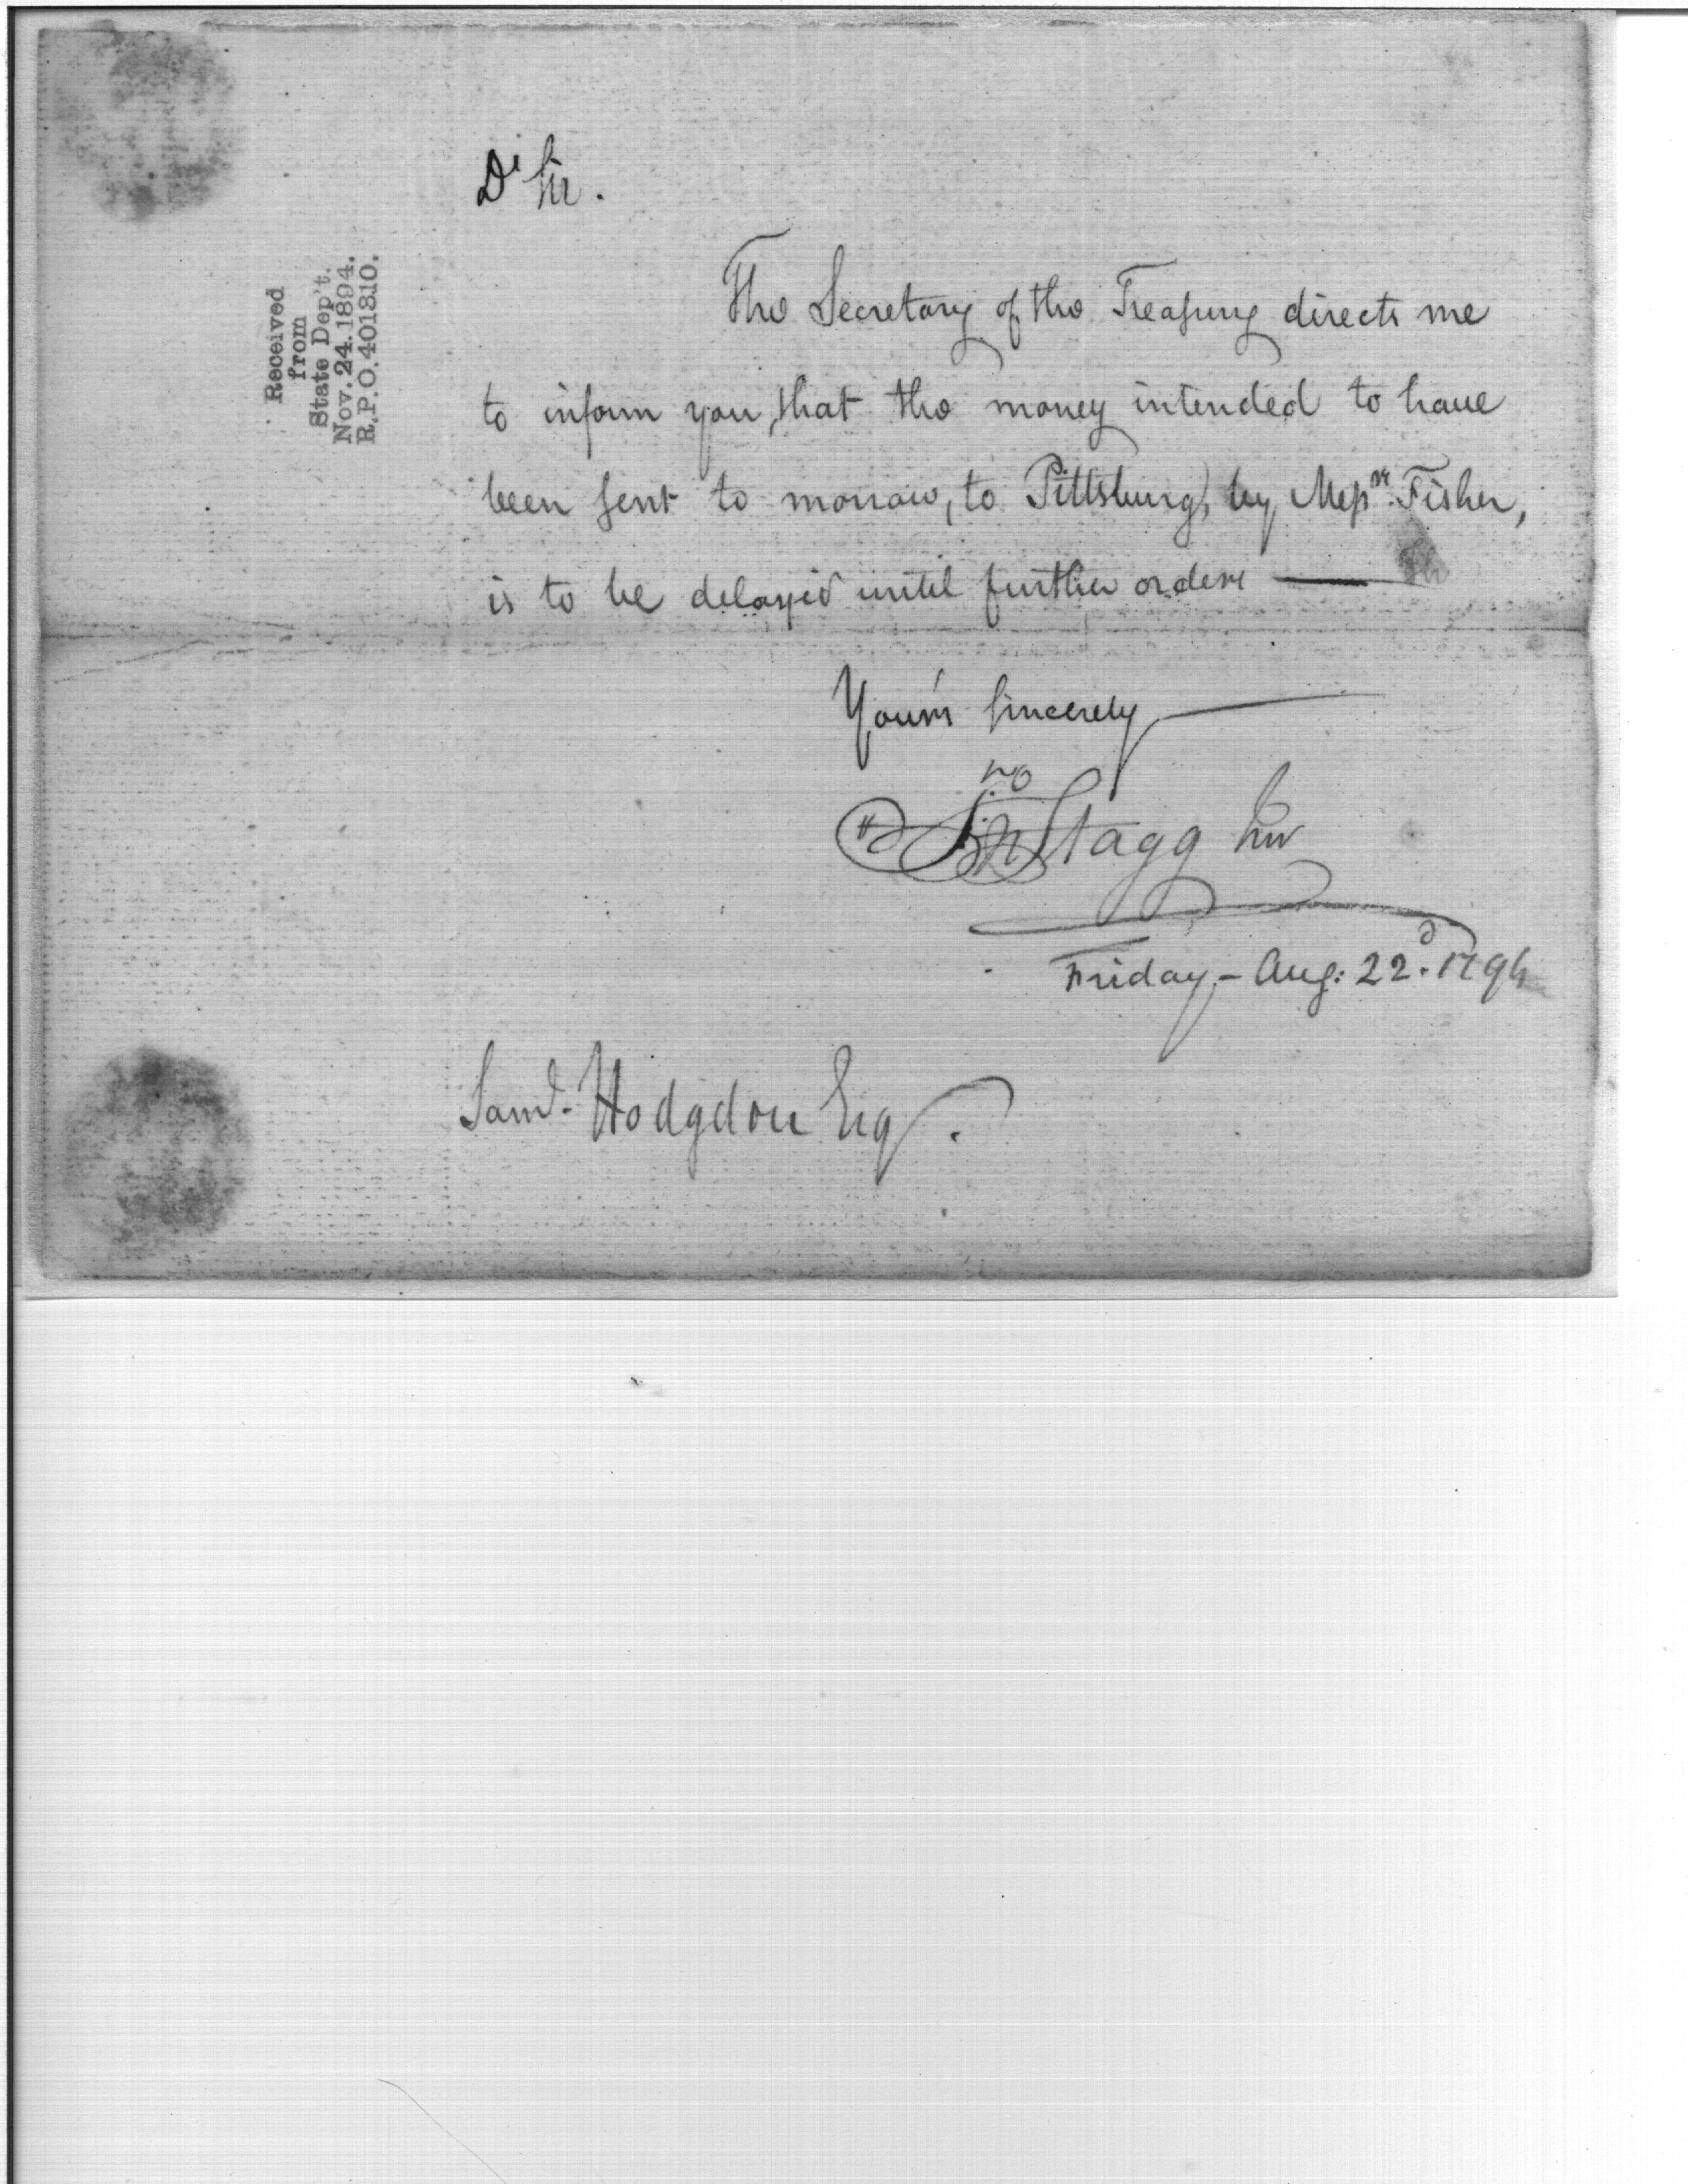 Dr Sir.
The Secretary of the Treasury directs me
to inform you, that the money intended to have
been sent to morrow, to Pittsburg, by Messrs. Fisher,
is to be delayed until further orders
Your's Sincerely
Jno Stagg Junr
Friday - Aug: 22.d 1794
Saml. Hodgdon Esq.
Received
from
State Dep't.
Nov. 24. 1894.
R.P.O. 401310.